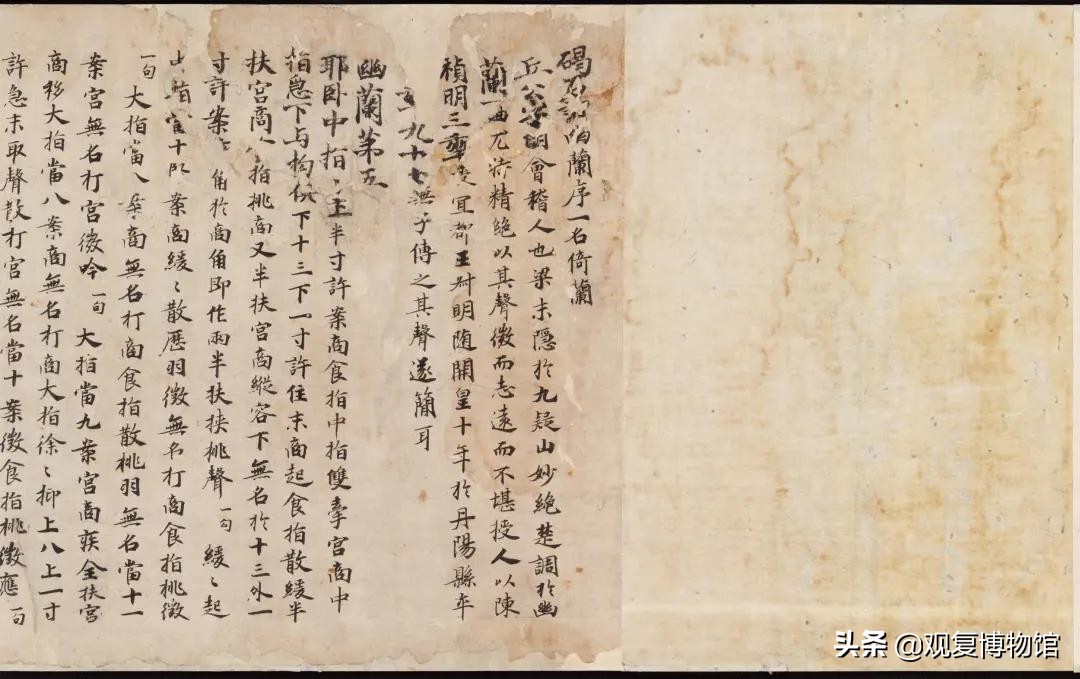 碣石調幽蘭序一名倚蘭
丘公字明會稽人也梁末隱於九疑山妙絕楚調於幽
蘭一曲尤特精絕以其聲微而志遠而不堪授人以陳
禎明三年授宜都王叔明隨開皇十年於丹陽縣卒
九十七無子傳之其聲遂簡耳
幽蘭第五
耶卧中指〻上半寸許案商食指中指雙牽宮商中
指急下与拘俱下十三下一寸許住末商起食指散緩半
扶宮商食指挑商又半扶宮商縱容下無名於十三外一
寸許案角於商角即作兩半扶挾挑聲一句緩〻起
指當十案商緩〻散歷羽徵無名打商食指挑徵
一句大指當八案商無名打商食指散挑羽無名當十一
案宮無名打宮徵吟一句大指當九案宮商疾全扶宮
商移大指當八案商無名打商大指徐〻抑上八上一寸
許急末取聲散打宮無名當十案徵食指挑徵應一句
头条 @观复博物馆